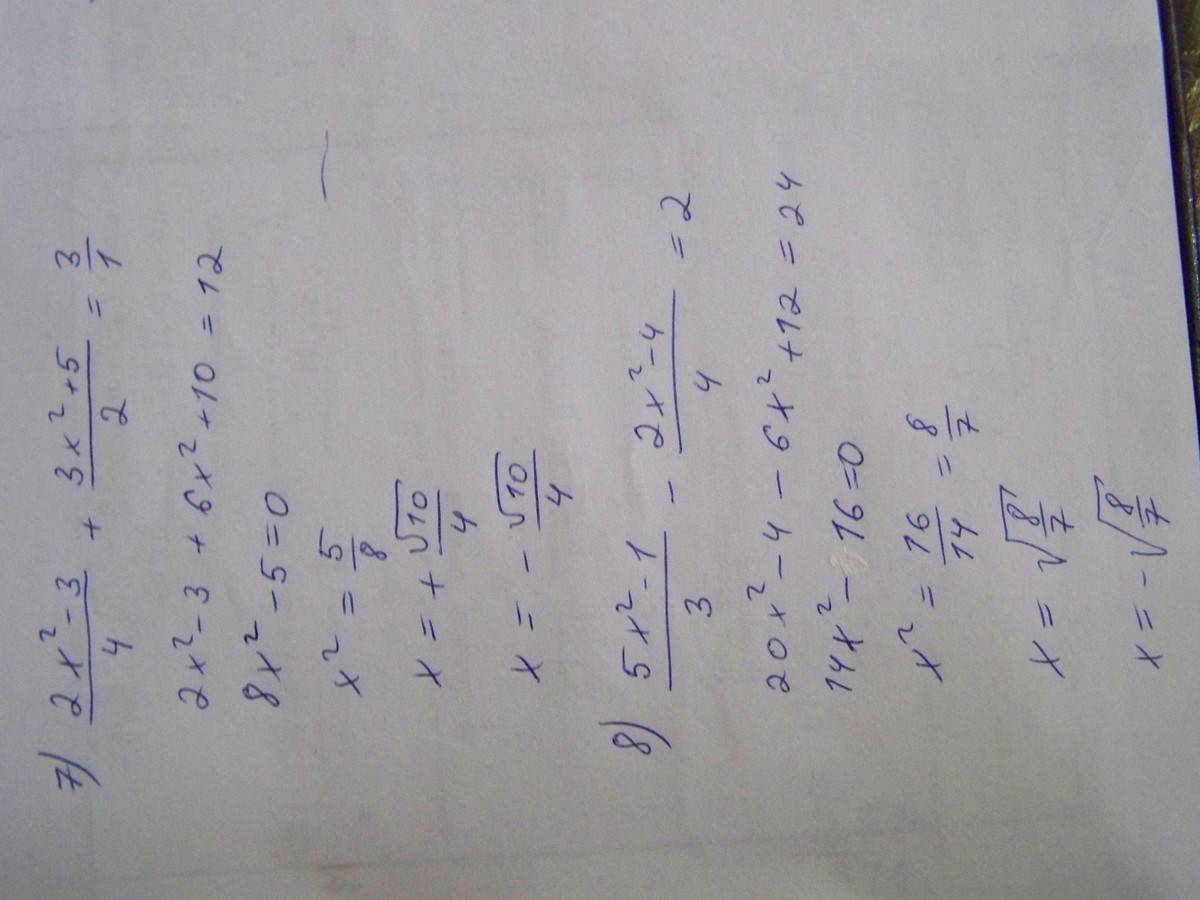 7) (2x² - 3)/4 + (3x² + 5)/2 = 3/1
2x² - 3 + 6x² + 10 = 12
8x² - 5 = 0
x² = 5/8
x = + √10/4
x = - √10/4
8) (5x² - 1)/3 - (2x² - 4)/4 = 2
20x² - 4 - 6x² + 12 = 24
14x² - 16 = 0
x² = 16/14 = 8/7
x = √(8/7)
x = - √(8/7)